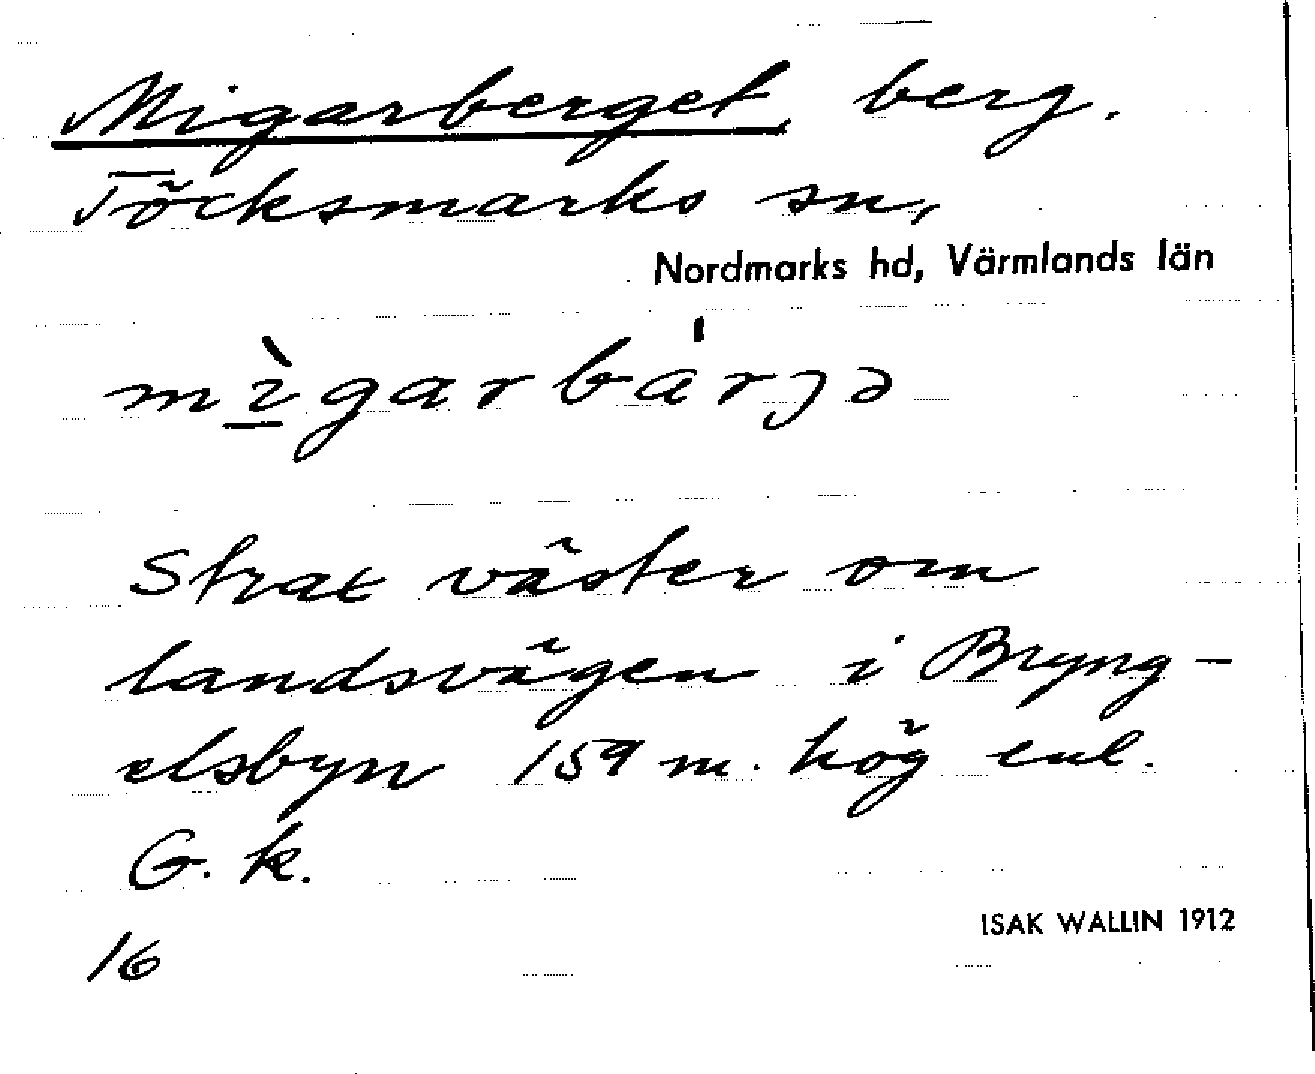 Migarberget, berg.
Töcksmarks sn,
Nordmarks hd, Värmlands län
mìgarbárjə
Strax väster om
landsvägen i Bryng-
elsbyn 159 m. hög enl.
G. k.
16
ISAK WALLIN 1912